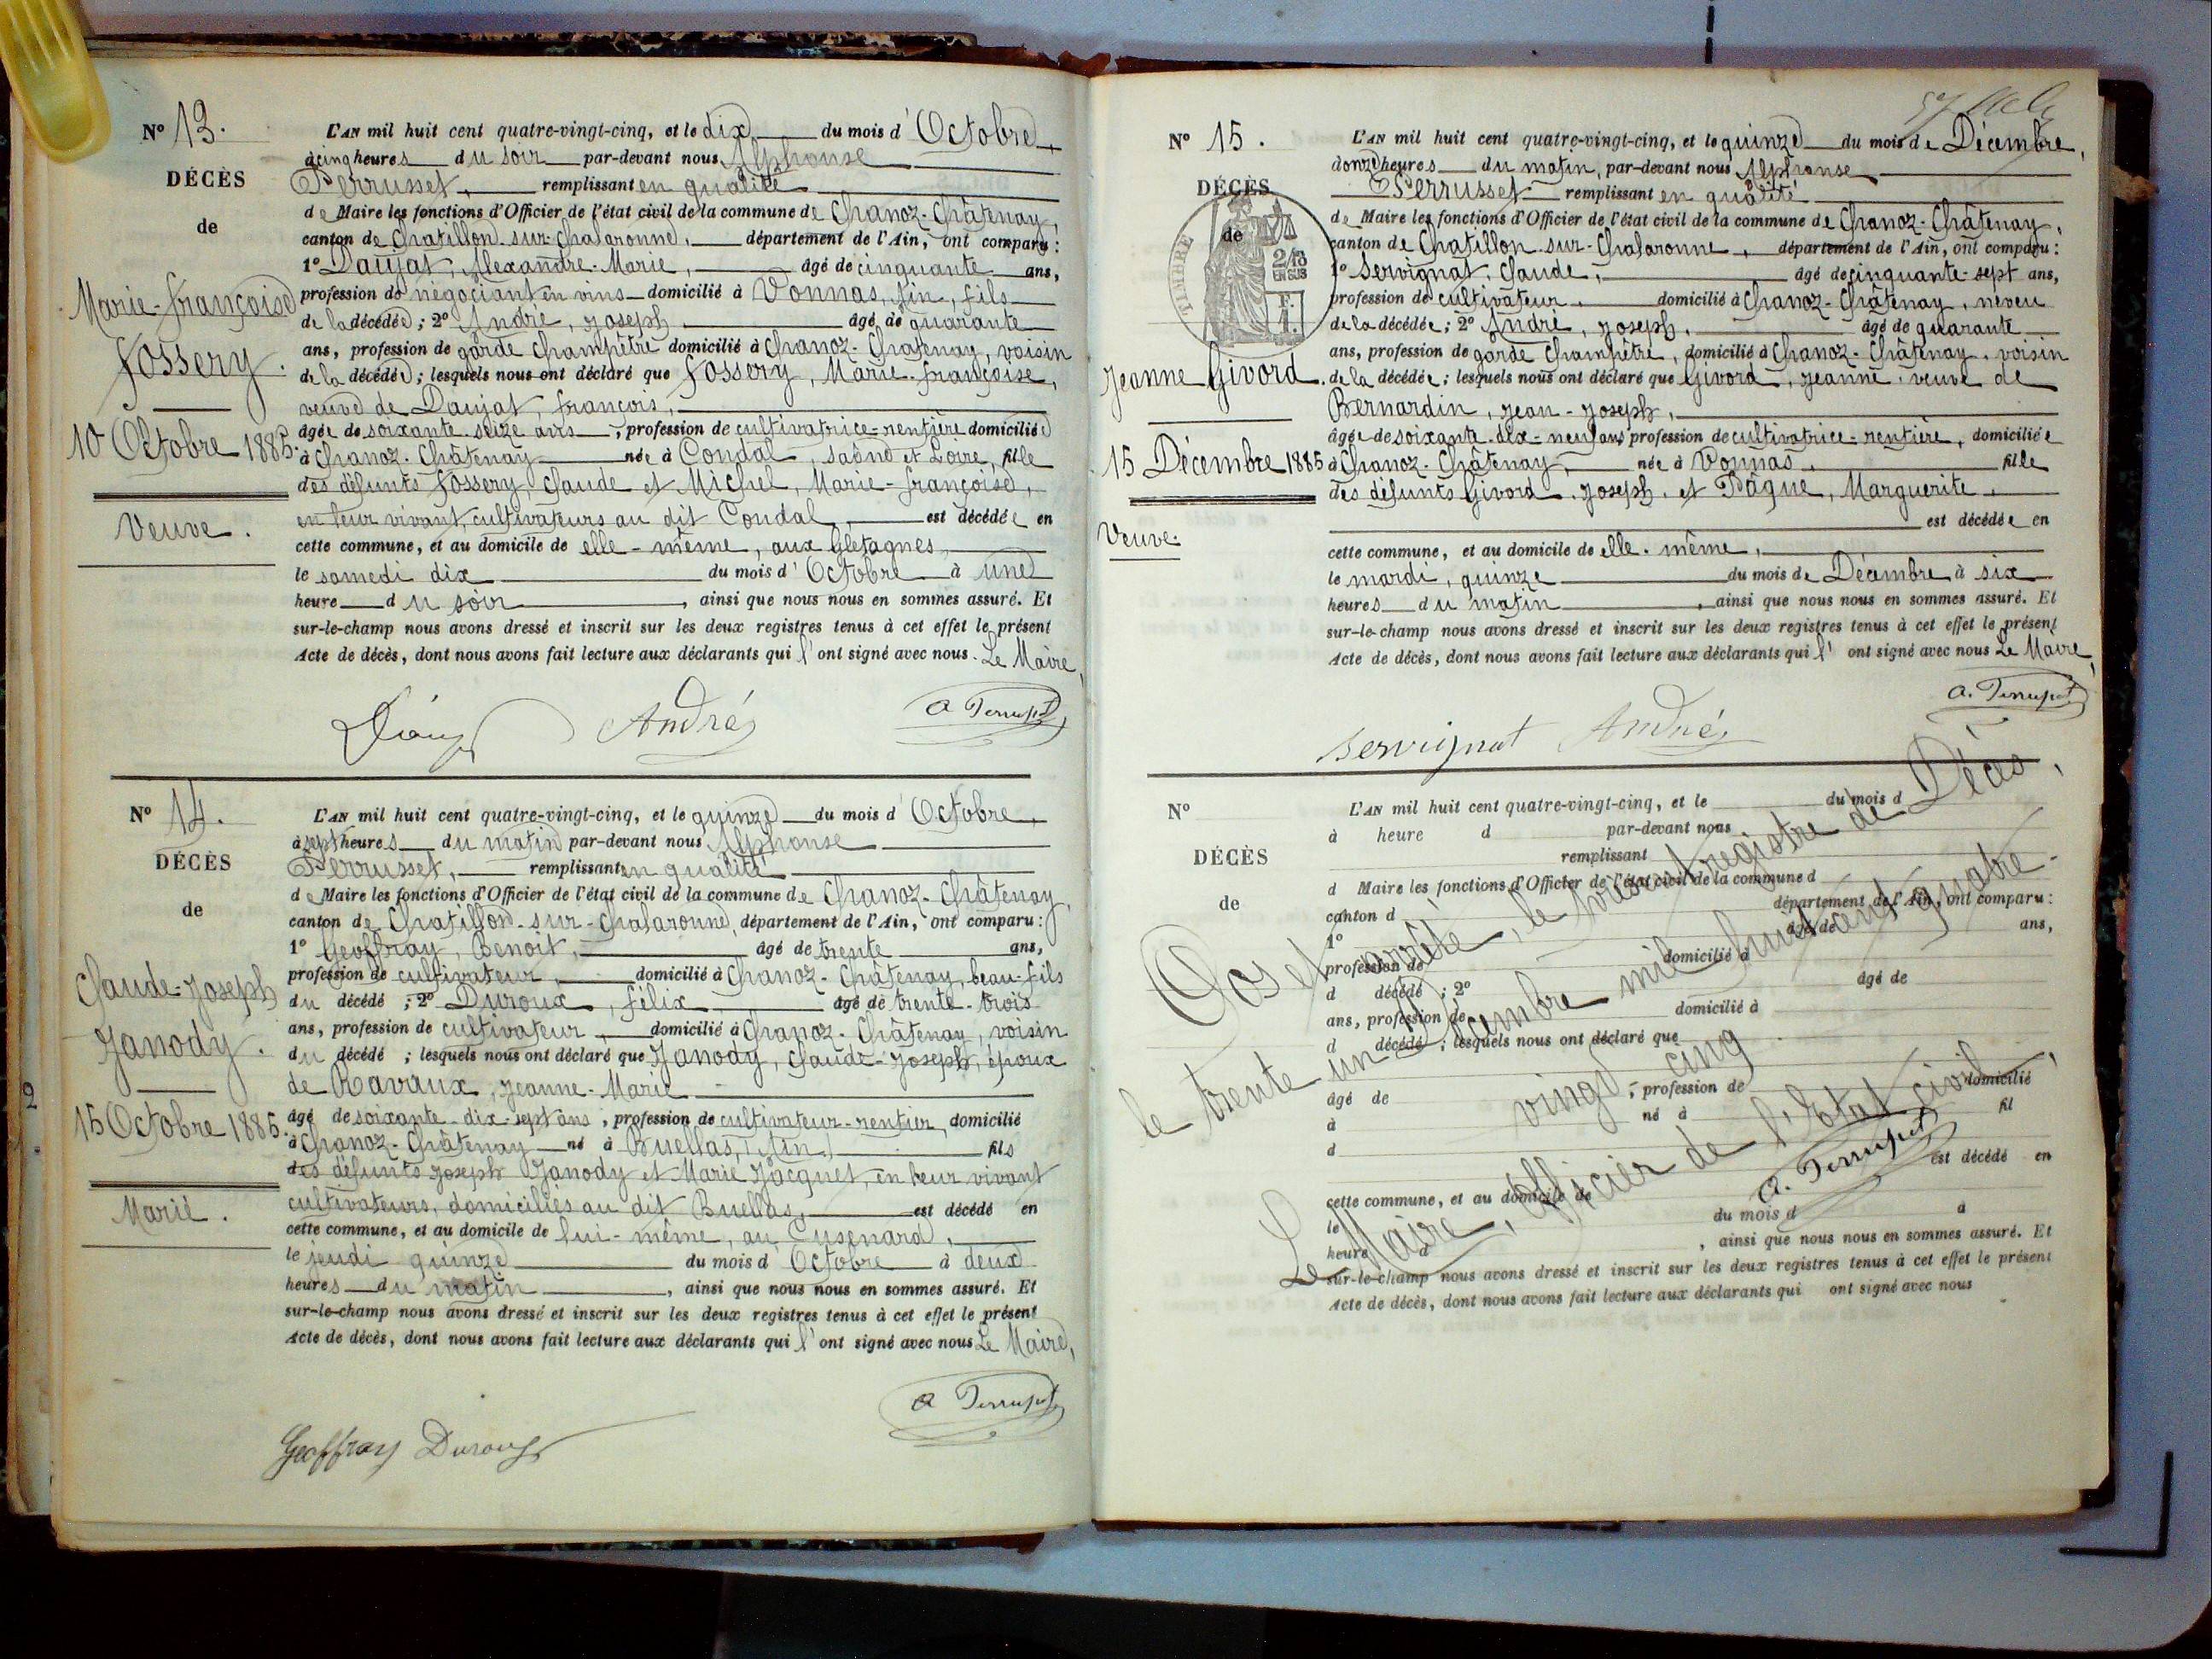 N° 13.
DÉCÈS
de
Marie-françoise
Fossery.
10 Octobre 1885.
Veuve.
L'AN mil huit cent quatre-vingt-cinq, et le dix du mois d'Octobre,
à cinq heures du soir par-devant nous Alphonse
Perrusset, remplissant en qualité
de Maire les fonctions d'Officier de l'état civil de la commune de Chanoz-Châtenay,
canton de Chatillon-sur-Chalaronne, département de l'Ain, ont comparu :
1° Daujat, Alexandre-Marie, âgé de cinquante ans,
profession de négociant en vins domicilié à Vonnas, Ain, fils
de la décédée ; 2° André, Joseph âgé de quarante
ans, profession de garde champêtre domicilié à Chanoz-Chatenay, voisin
de la décédée ; lesquels nous ont déclaré que Fossery, Marie-françoise,
veuve de Daujat, françois,
âgée de soixante-seize ans, profession de cultivatrice-rentière domiciliée
à Chanoz-Châtenay née à Condal, Saône et Loire, fille
des défunts Fossery, Claude et Michel, Marie-françoise,
en leur vivant, cultivateurs au dit Condal, est décédée en
cette commune, et au domicile de elle-même, aux Gletagnes,
le samedi dix du mois d'Octobre à une
heure du soir, ainsi que nous nous en sommes assuré. Et
sur-le-champ nous avons dressé et inscrit sur les deux registres tenus à cet effet le présent
Acte de décès, dont nous avons fait lecture aux déclarants qui l'ont signé avec nous. Le Maire,
André A Perrusset
N° 14.
DÉCÈS
de
Claude-Joseph
Janody.
15 Octobre 1885.
Marié.
L'AN mil huit cent quatre-vingt-cinq, et le quinze du mois d'Octobre,
à sept heures du matin par-devant nous Alphonse
Perrusset, remplissant en qualité
de Maire les fonctions d'Officier de l'état civil de la commune de Chanoz-Châtenay,
canton de Chatillon-sur-Chalaronne, département de l'Ain, ont comparu :
1° Geoffray, Benoit, âgé de trente ans,
profession de cultivateur, domicilié à Chanoz-Châtenay, beau-fils
du décédé ; 2° Duroux, félix âgé de trente-trois
ans, profession de cultivateur, domicilié à Chanoz-Châtenay, voisin
du décédé ; lesquels nous ont déclaré que Janody, Claude-Joseph, époux
de Ravaux, Jeanne-Marie
âgé de soixante-dix-sept ans, profession de cultivateur-rentier, domicilié
à Chanoz-Châtenay né à Buellas, (Ain) fils
des défunts Joseph Janody et Marie Jacquet, en leur vivant
cultivateurs, domiciliés au dit Buellas, est décédé en
cette commune, et au domicile de lui-même, au Cusenard,
le jeudi quinze du mois d'Octobre à deux
heures du matin, ainsi que nous nous en sommes assuré. Et
sur-le-champ nous avons dressé et inscrit sur les deux registres tenus à cet effet le présent
Acte de décès, dont nous avons fait lecture aux déclarants qui l'ont signé avec nous Le Maire,
A Perrusset
Geoffray Duroux
N° 15.
DÉCÈS
de
TIMBRE
2/10
EN SUS
F.
1.
Jeanne Givord.
15 Décembre 1885
Veuve.
L'AN mil huit cent quatre-vingt-cinq, et le quinze du mois de Décembre,
à onze heures du matin, par-devant nous Alphonse
Perrusset remplissant en qualité
de Maire les fonctions d'Officier de l'état civil de la commune de Chanoz-Châtenay,
canton de Chatillon-sur-Chalaronne, département de l'Ain, ont comparu :
1° Servignat, Claude, âgé de cinquante-sept ans,
profession de cultivateur, domicilié à Chanoz-Châtenay, neveu
de la décédée ; 2° André, Joseph, âgé de quarante
ans, profession de garde champêtre, domicilié à Chanoz-Châtenay, voisin
de la décédée ; lesquels nous ont déclaré que Givord, Jeanne, veuve de
Bernardin, Jean-Joseph,
âgée de soixante-dix-neuf ans profession de cultivatrice-rentière, domiciliée
à Chanoz-Châtenay, née à Vonnas, fille
des défunts Givord, Joseph, et Pâque, Marguerite,
est décédée en
cette commune, et au domicile de elle-même,
le mardi, quinze du mois de Décembre à six
heures du matin, ainsi que nous nous en sommes assuré. Et
sur-le-champ nous avons dressé et inscrit sur les deux registres tenus à cet effet le présent
Acte de décès, dont nous avons fait lecture aux déclarants qui l'ont signé avec nous Le Maire,
A. Perrusset
Servignat André
N°
DÉCÈS
de
L'AN mil huit cent quatre-vingt-cinq, et le du mois d
à heure d par-devant nous
remplissant
d Maire les fonctions d'Officier de l'état civil de la commune d
canton d département de l'Ain, ont comparu :
1° âgé de ans,
profession de domicilié à
d décédé ; 2° âgé de
ans, profession de domicilié à
d décédé ; lesquels nous ont déclaré que
âgé de , profession de domicilié
à né à fil
d
est décédé en
cette commune, et au domicile de
le du mois d à
heure d , ainsi que nous nous en sommes assuré. Et
sur-le-champ nous avons dressé et inscrit sur les deux registres tenus à cet effet le présent
Acte de décès, dont nous avons fait lecture aux déclarants qui ont signé avec nous
Clos et arrêté, le présent registre de Décès,
le trente un Décembre mil huit cent quatre-
vingt cinq
Le Maire, Officier de l'Etat civil,
A. Perrusset